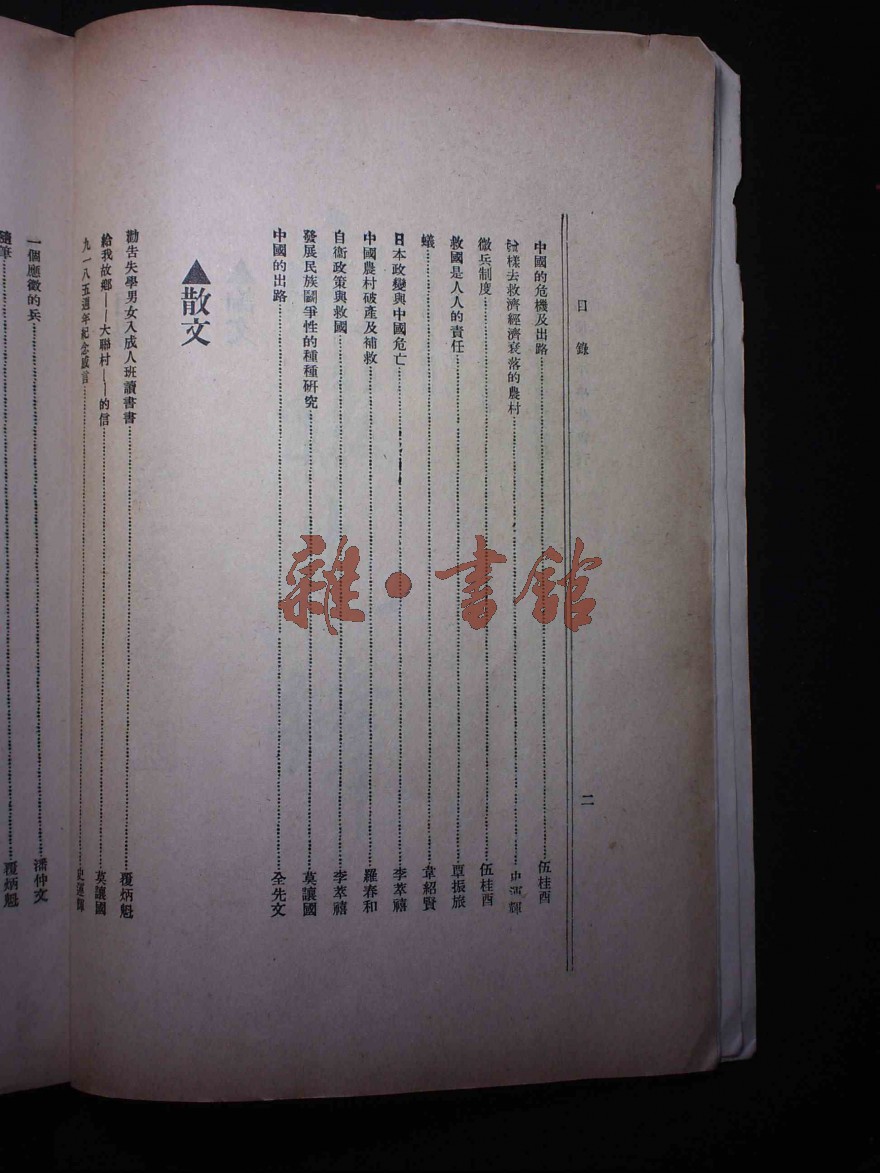 目錄
二
中國的危機及出路 伍桂酉
樣去救濟經濟衰落的農村 史運輝
徵兵制度 伍桂酉
救國是人人的責任 覃振旅
蟻 韋紹賢
日本政變與中國危亡 李萃禧
中國農村破產及補救 羅春和
自衞政策與救國 李萃禧
發展民族鬪爭性的種種研究 莫讓國
中國的出路 全先文
▲散文
勸告失學男女入成人班讀書書 覆炳魁
給我故鄉——大聯村——的信 莫讓國
九一八五週年紀念感言 史運輝
一個應徵的兵 潘仲文
隨筆 覆炳魁
雜·書館